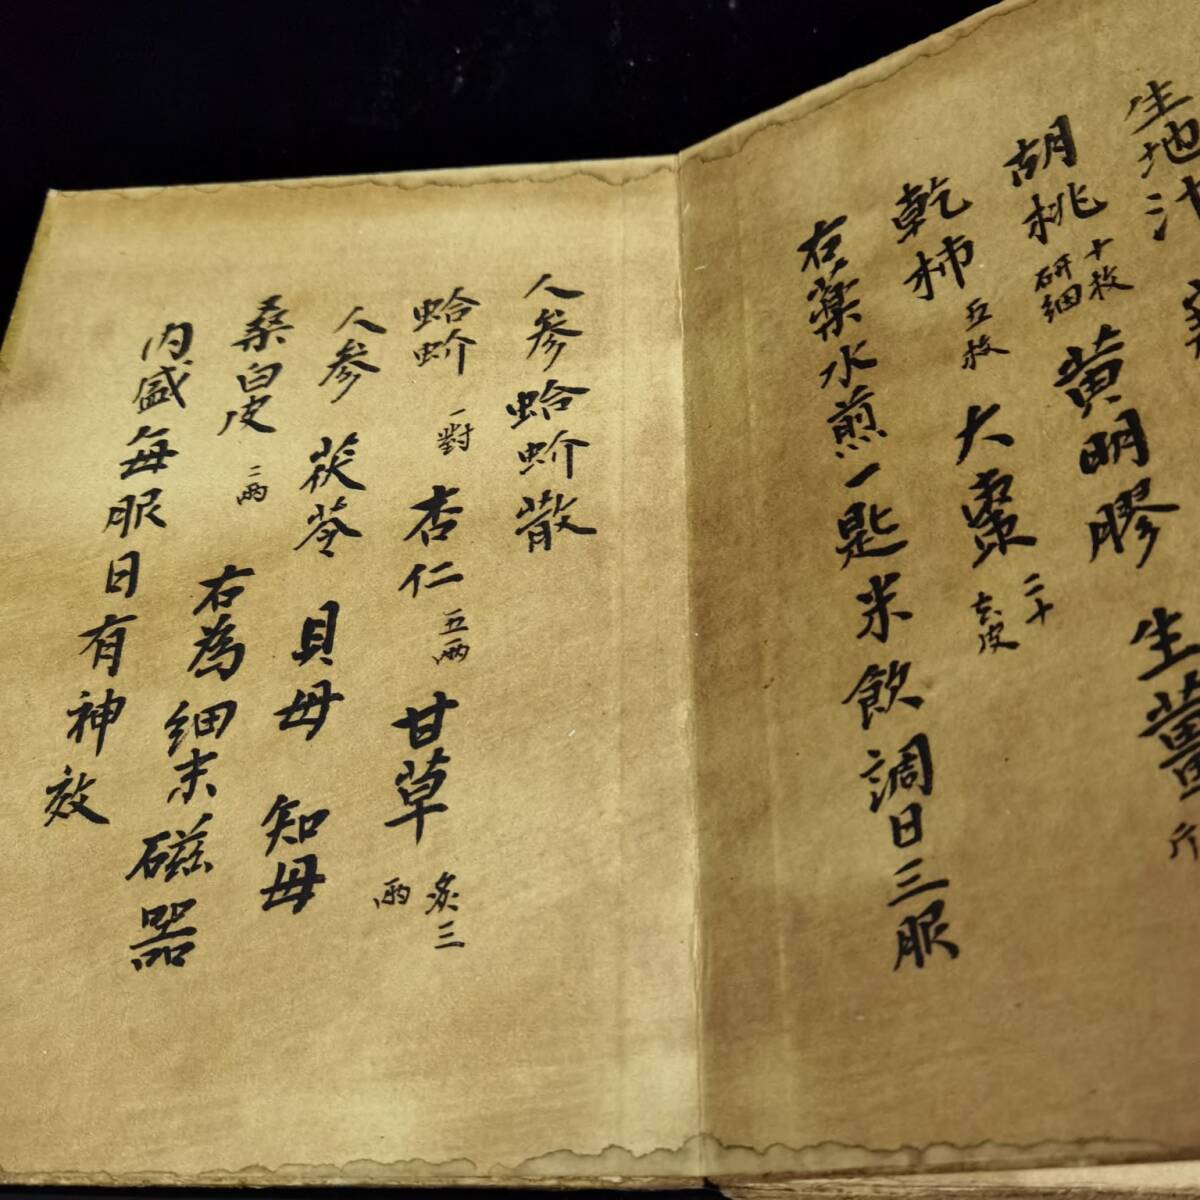 生地汁
胡桃 十枚 研细 黄明膠 生薑 斤
乾柿 五枚 大棗 二十 去皮
右藥水煎一匙米飲調日三服
人参蛤蚧散
蛤蚧 一對 杏仁 五兩 甘草 炙三兩
人参 茯苓 貝母 知母
桑白皮 二兩 右為细末磁器
内盛每服日有神效